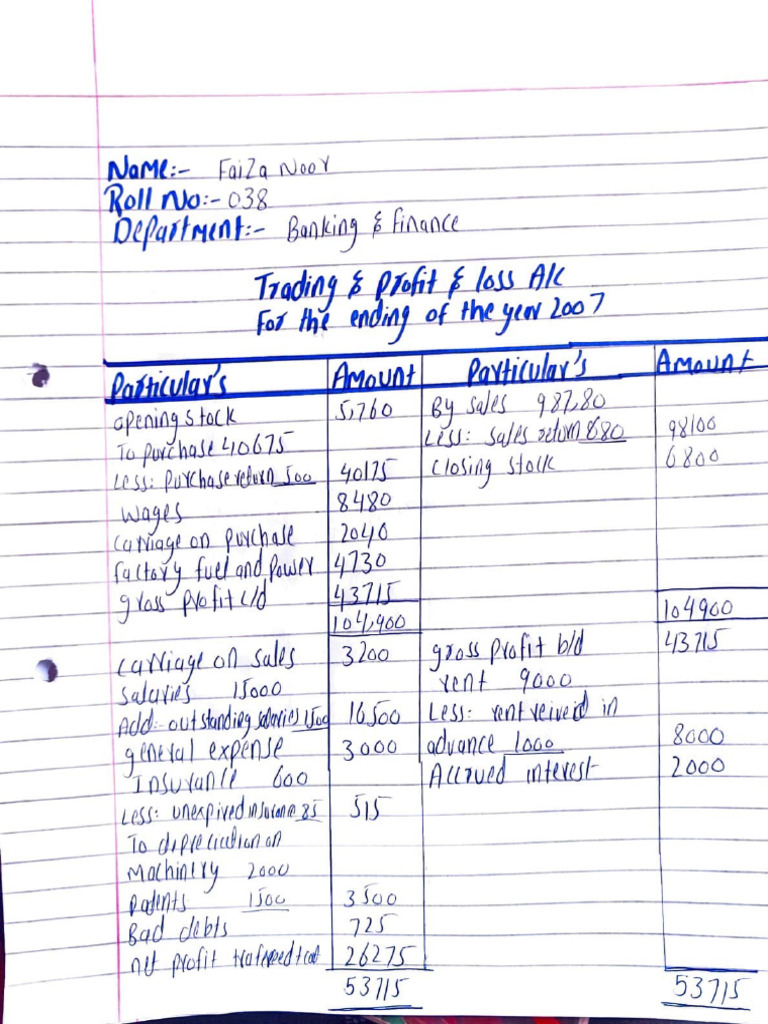 Name:- Faiza Noor
Roll No:- 038
Department:- Banking & finance
Trading & Profit & loss A/c
For the ending of the year 2007
Particular's Amount Particular's Amount
opening stock 5,760 By sales 987,80
To purchase 40675 Less: sales return 680 98100
Less: purchase return 500 40175 closing stock 6800
wages 8480
carriage on purchase 2040
factory fuel and power 4730
gross profit c/d 43715
104,900 104900
carriage on sales 3200 gross profit b/d 43715
salaries 15000 rent 9000
Add:- outstanding salaries 1500 16500 Less: rent reived in
general expense 3000 advance 1000 8000
Insurance 600 Accrued interest 2000
Less: unexpired insurance 85 515
To depreciation on
Machinery 2000
patents 1500 3500
Bad debts 725
net profit 26275
53715 53715